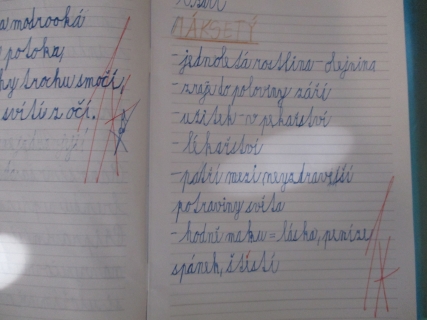 a modrooká
potoka,
trochu smočí,
svítí z očí.
MÁK SETÝ
- jednoletá rostlina - olejnina
- zraje do poloviny září
- užitek - v pekařství
- lékařství
- patří mezi nejzdravější
potraviny světa
- hodně máku = láska, peníze
spánek, štěstí